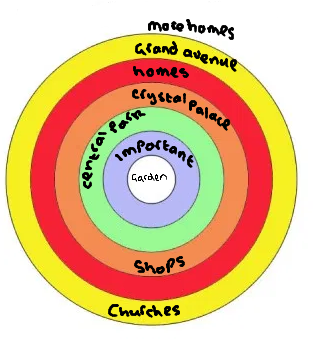 more homes
Grand avenue
homes
Crystal Palace
central Park
Important
Garden
Shops
Churches